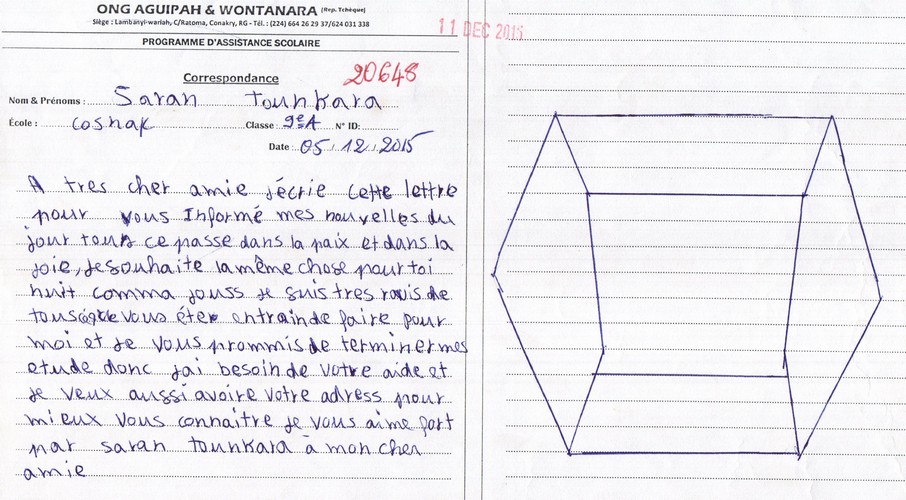 ONG AGUIPAH & WONTANARA (Rep. Tchèque)
Siège : Lambanyi-wariah, C/Ratoma, Conakry, RG - Tél. : (224) 664 26 29 37/624 031 338
11 DEC 2015
PROGRAMME D'ASSISTANCE SCOLAIRE
Correspondance
20648
Nom & Prénoms : Saran Tounkara
École : Cosnak Classe : 9e A N° ID:
Date : 05/12/2015
A tres cher amie j'écrie cette lettre
pour vous Informé mes nouvelles du
jour tous ce passe dans la paix et dans la
joie, je souhaite la même chose pour toi
nuit comma jouss je suis tres ravis de
tous vous éter entrainde faire pour
moi et je vous prommis de terminer mes
etude donc jai besoin de votre aide et
je veux aussi avoire votre adress pour
mieux vous connaitre je vous aime fort
par saran tounkara à mon cher
amie